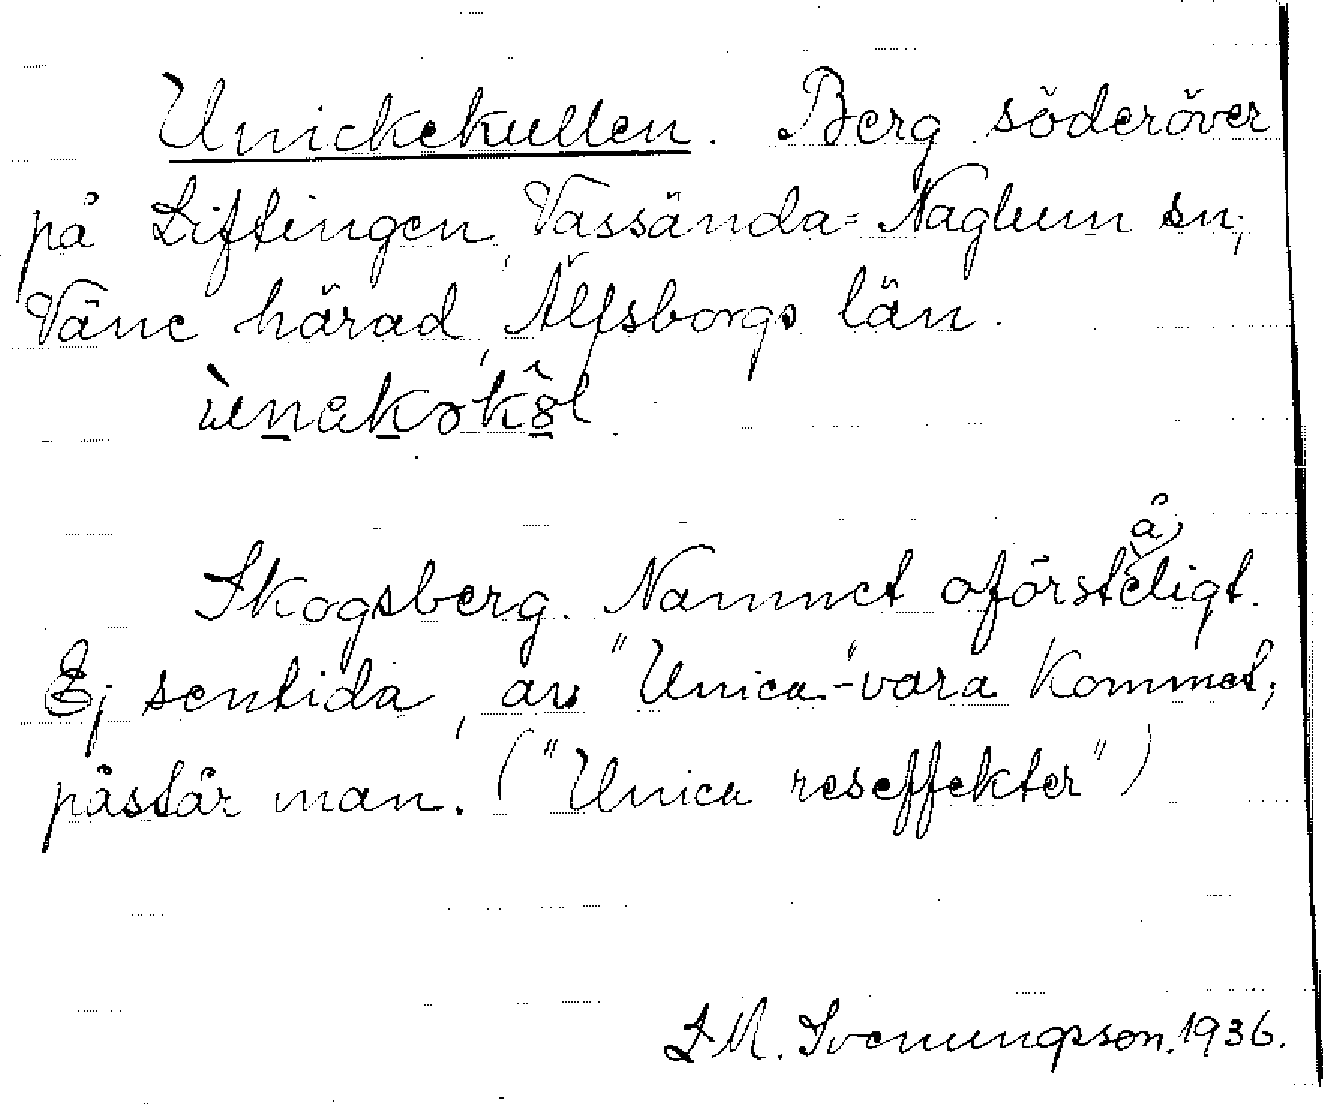 Unickekullen. Berg söderöver
på Liftingen, Vassända-Naglum sn,
Väne härad, Älfsborgs län.
Skogsberg. Namnet oförståeligt.
Ej sentida, av "Unica"-vara kommet,
påstår man. ("Unica reseffekter")
L.M. Svenungsson. 1936.